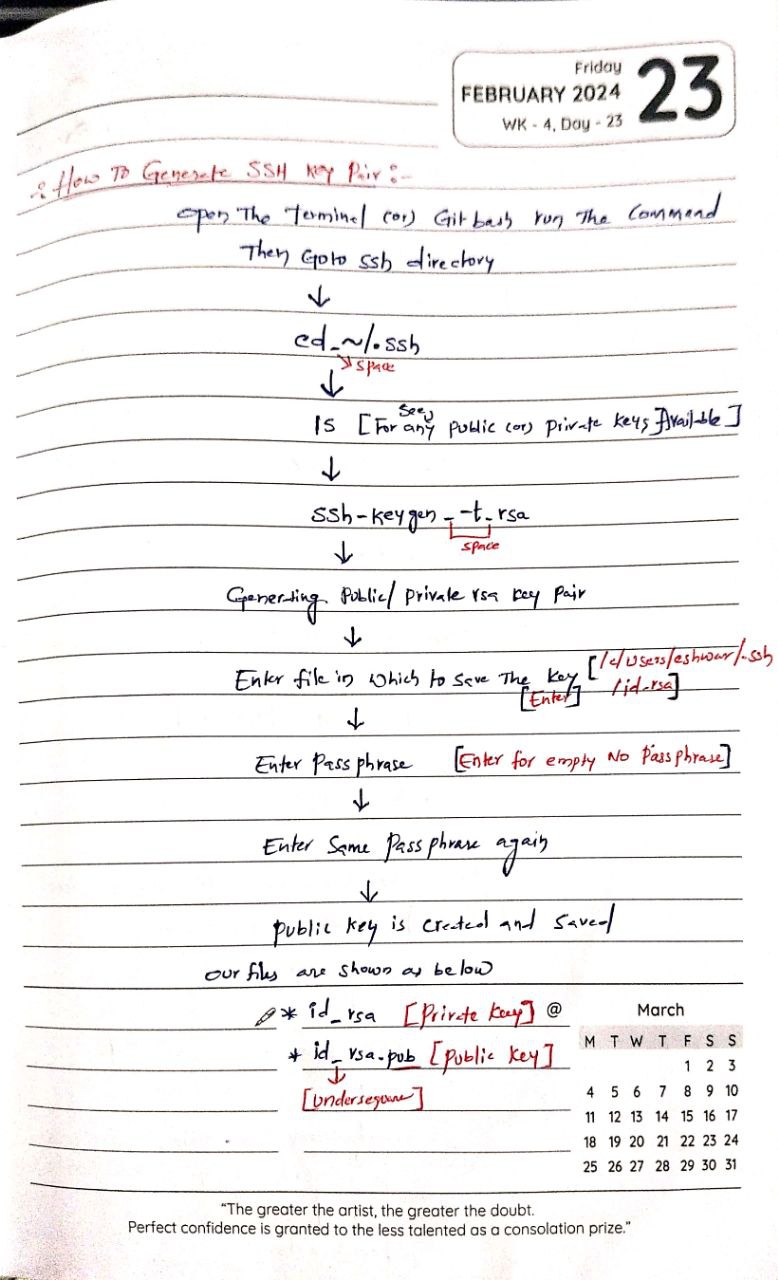 Friday
FEBRUARY 2024
23
WK - 4, Day - 23
How To Generate SSH Key Pair :-
open The Terminal (or) Git bash run The Command
Then Goto ssh directory
↓
cd_~/.ssh
space
↓
ls [See For any public (or) private keys Available]
↓
ssh-keygen_-t_rsa
space
↓
Generating Public/ private rsa key pair
↓
Enter file in which to save The key [/c/users/eshwar/.ssh
[Enter] /id_rsa]
↓
Enter Passphrase [Enter for empty No Passphrase]
↓
Enter Same Passphrase again
↓
public key is created and saved
our files are shown as below
* id_rsa [Private key] @
* id_rsa.pub [public key]
↓
March
M T W T F S S
1 2 3
4 5 6 7 8 9 10
11 12 13 14 15 16 17
18 19 20 21 22 23 24
25 26 27 28 29 30 31
"The greater the artist, the greater the doubt.
Perfect confidence is granted to the less talented as a consolation prize."